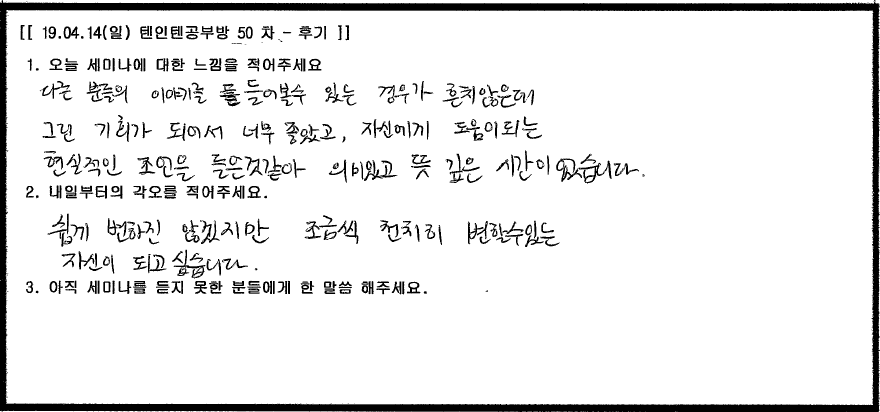 [[ 19.04.14(일) 텐인텐공부방 50 차 - 후기 ]]
1. 오늘 세미나에 대한 느낌을 적어주세요
다른 분들의 이야기를 들어볼수 있는 경우가 흔치않은데
그런 기회가 되어서 너무 좋았고, 자신에게 도움이되는
현실적인 조언을 들은것같아 의미있고 뜻 깊은 시간이였습니다.
2. 내일부터의 각오를 적어주세요.
쉽게 변하진 않겠지만 조금씩 천천히 변할수있는
자신이 되고싶습니다.
3. 아직 세미나를 듣지 못한 분들에게 한 말씀 해주세요.